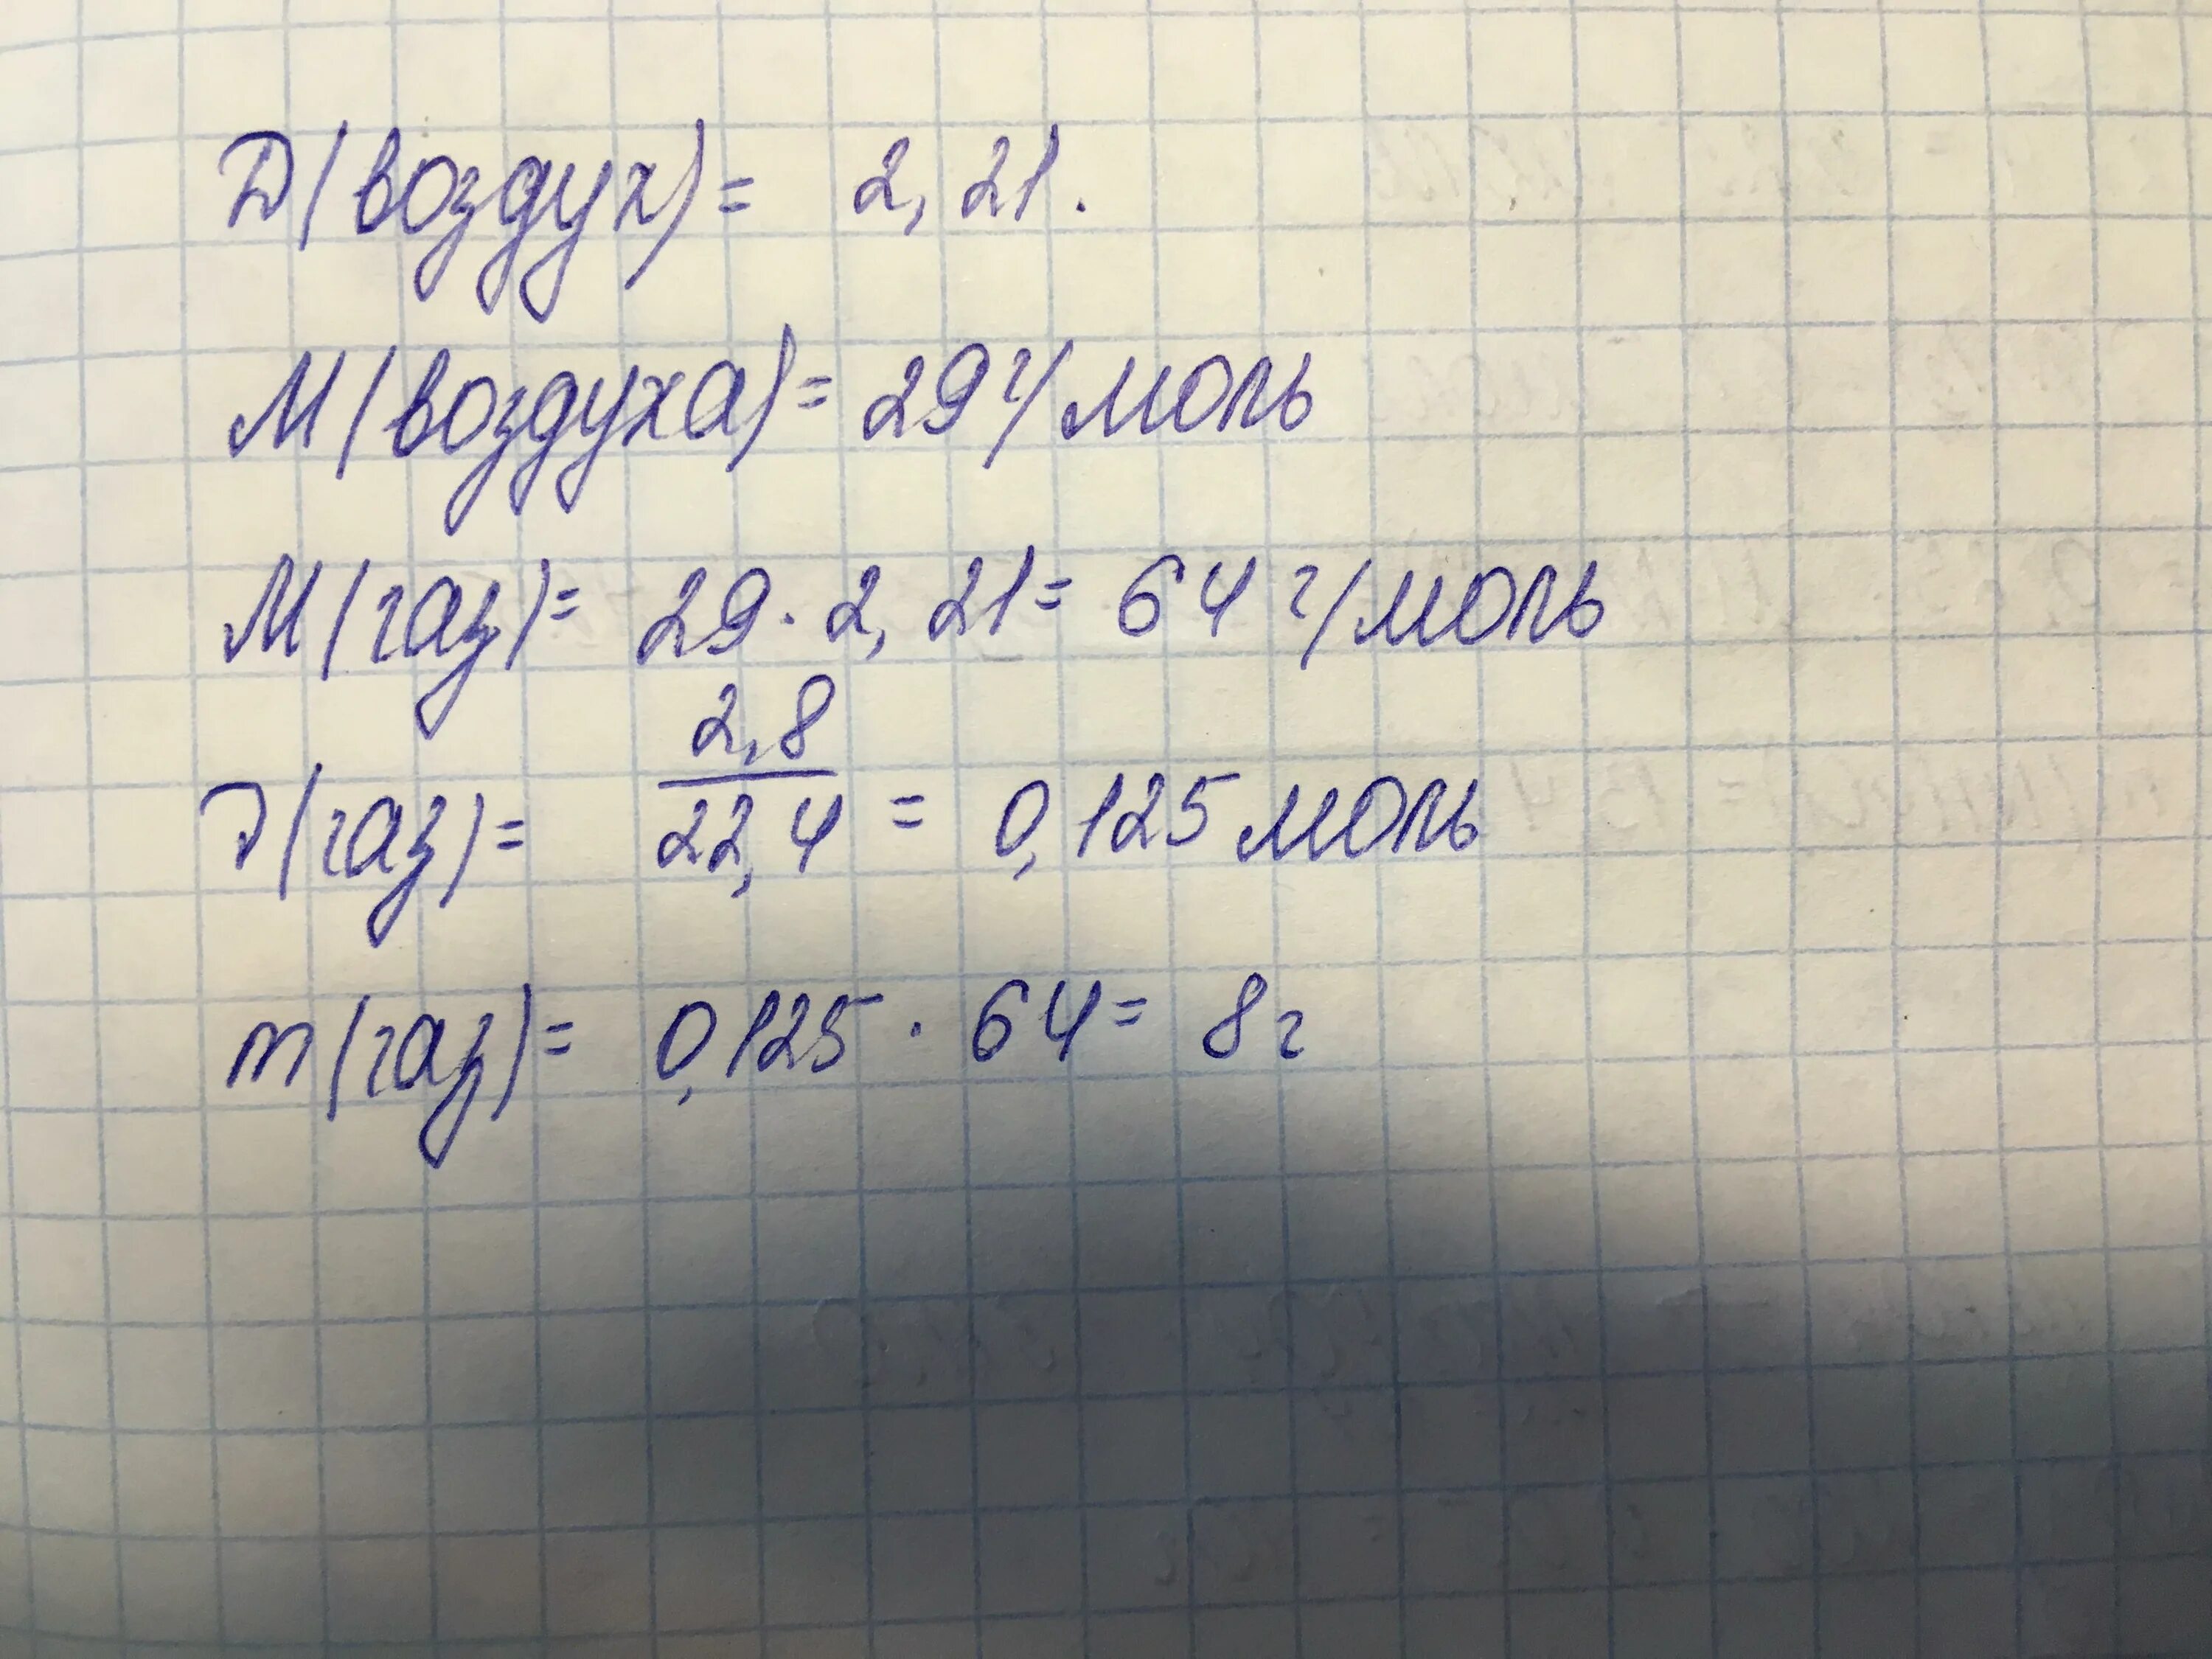 D(воздух) = 2,21.
M(воздуха) = 29 г/моль
M(газ) = 29 · 2,21 = 64 г/моль
ν(газ) = 2,8/22,4 = 0,125 моль
m(газ) = 0,125 · 64 = 8 г